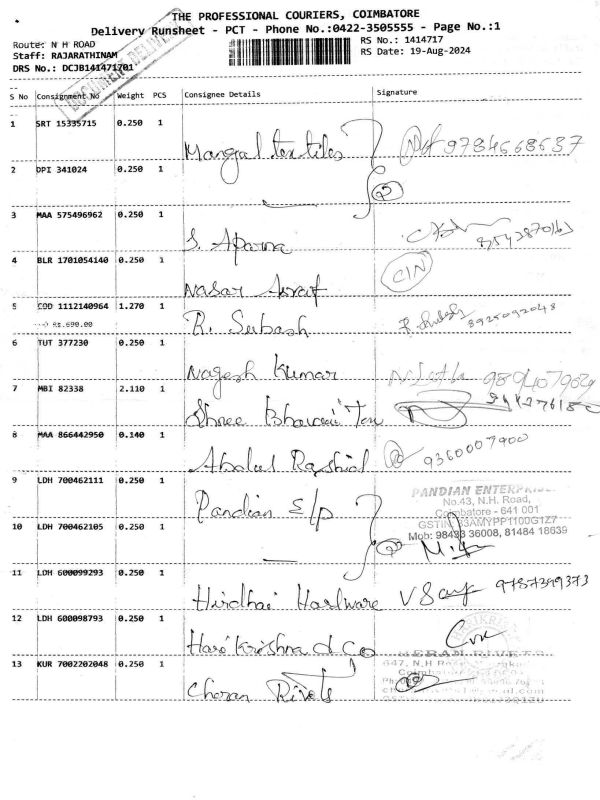 THE PROFESSIONAL COURIERS, COIMBATORE
Delivery Runsheet - PCT - Phone No.:0422-3505555 - Page No.:1
Route: N H ROAD
RS No.: 1414717
Staff: RAJARATHINAM
RS Date: 19-Aug-2024
DRS No.: DCJB141471701
DOCUMENT DELIVERY
S No Consignment No Weight PCS Consignee Details Signature
1 SRT 15335715 0.250 1
Mangal textiles 9784568637
2 DPI 341024 0.250 1
2
3 MAA 575496962 0.250 1
S. Aparna
4 BLR 1701054140 0.250 1
Nasar CIN
5 COD 1112140964 1.270 1
---> Rs.690.00
R. Subash 8925092048
6 TUT 377230 0.250 1
Nagesh Kumar
7 MBI 82338 2.110 1
Shree
8 MAA 866442950 0.140 1
Abdul Rashid 9360007900
9 LDH 700462111 0.250 1
Pandian E/p
PANDIAN ENTERPRISES
No.43, N.H. Road,
Coimbatore - 641 001
GSTIN: 33AMYPP1100G1Z7
Mob: 98433 36008, 81484 18639
10 LDH 700462105 0.250 1
2
11 LDH 600099293 0.250 1
Hirdhai Hardware 9787399373
12 LDH 600098793 0.250 1
Hari Krishna & Co
13 KUR 7002202048 0.250 1
CHERAN RIVETS
647, N.H Road
Cheran Rivets